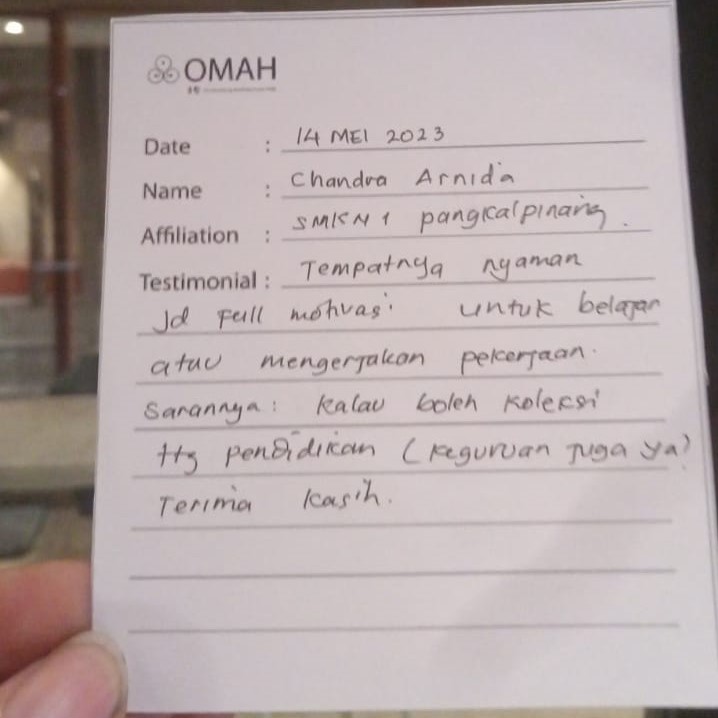 OMAH
Date : 14 MEI 2023
Name : Chandra Arnida
Affiliation : SMKN 1 pangkalpinang.
Testimonial : Tempatnya nyaman
Jd Full motivasi untuk belajar
atau mengerjakan pekerjaan.
Sarannya : Kalau boleh koleksi
ttg pendidikan (keguruan juga ya)
Terima kasih.